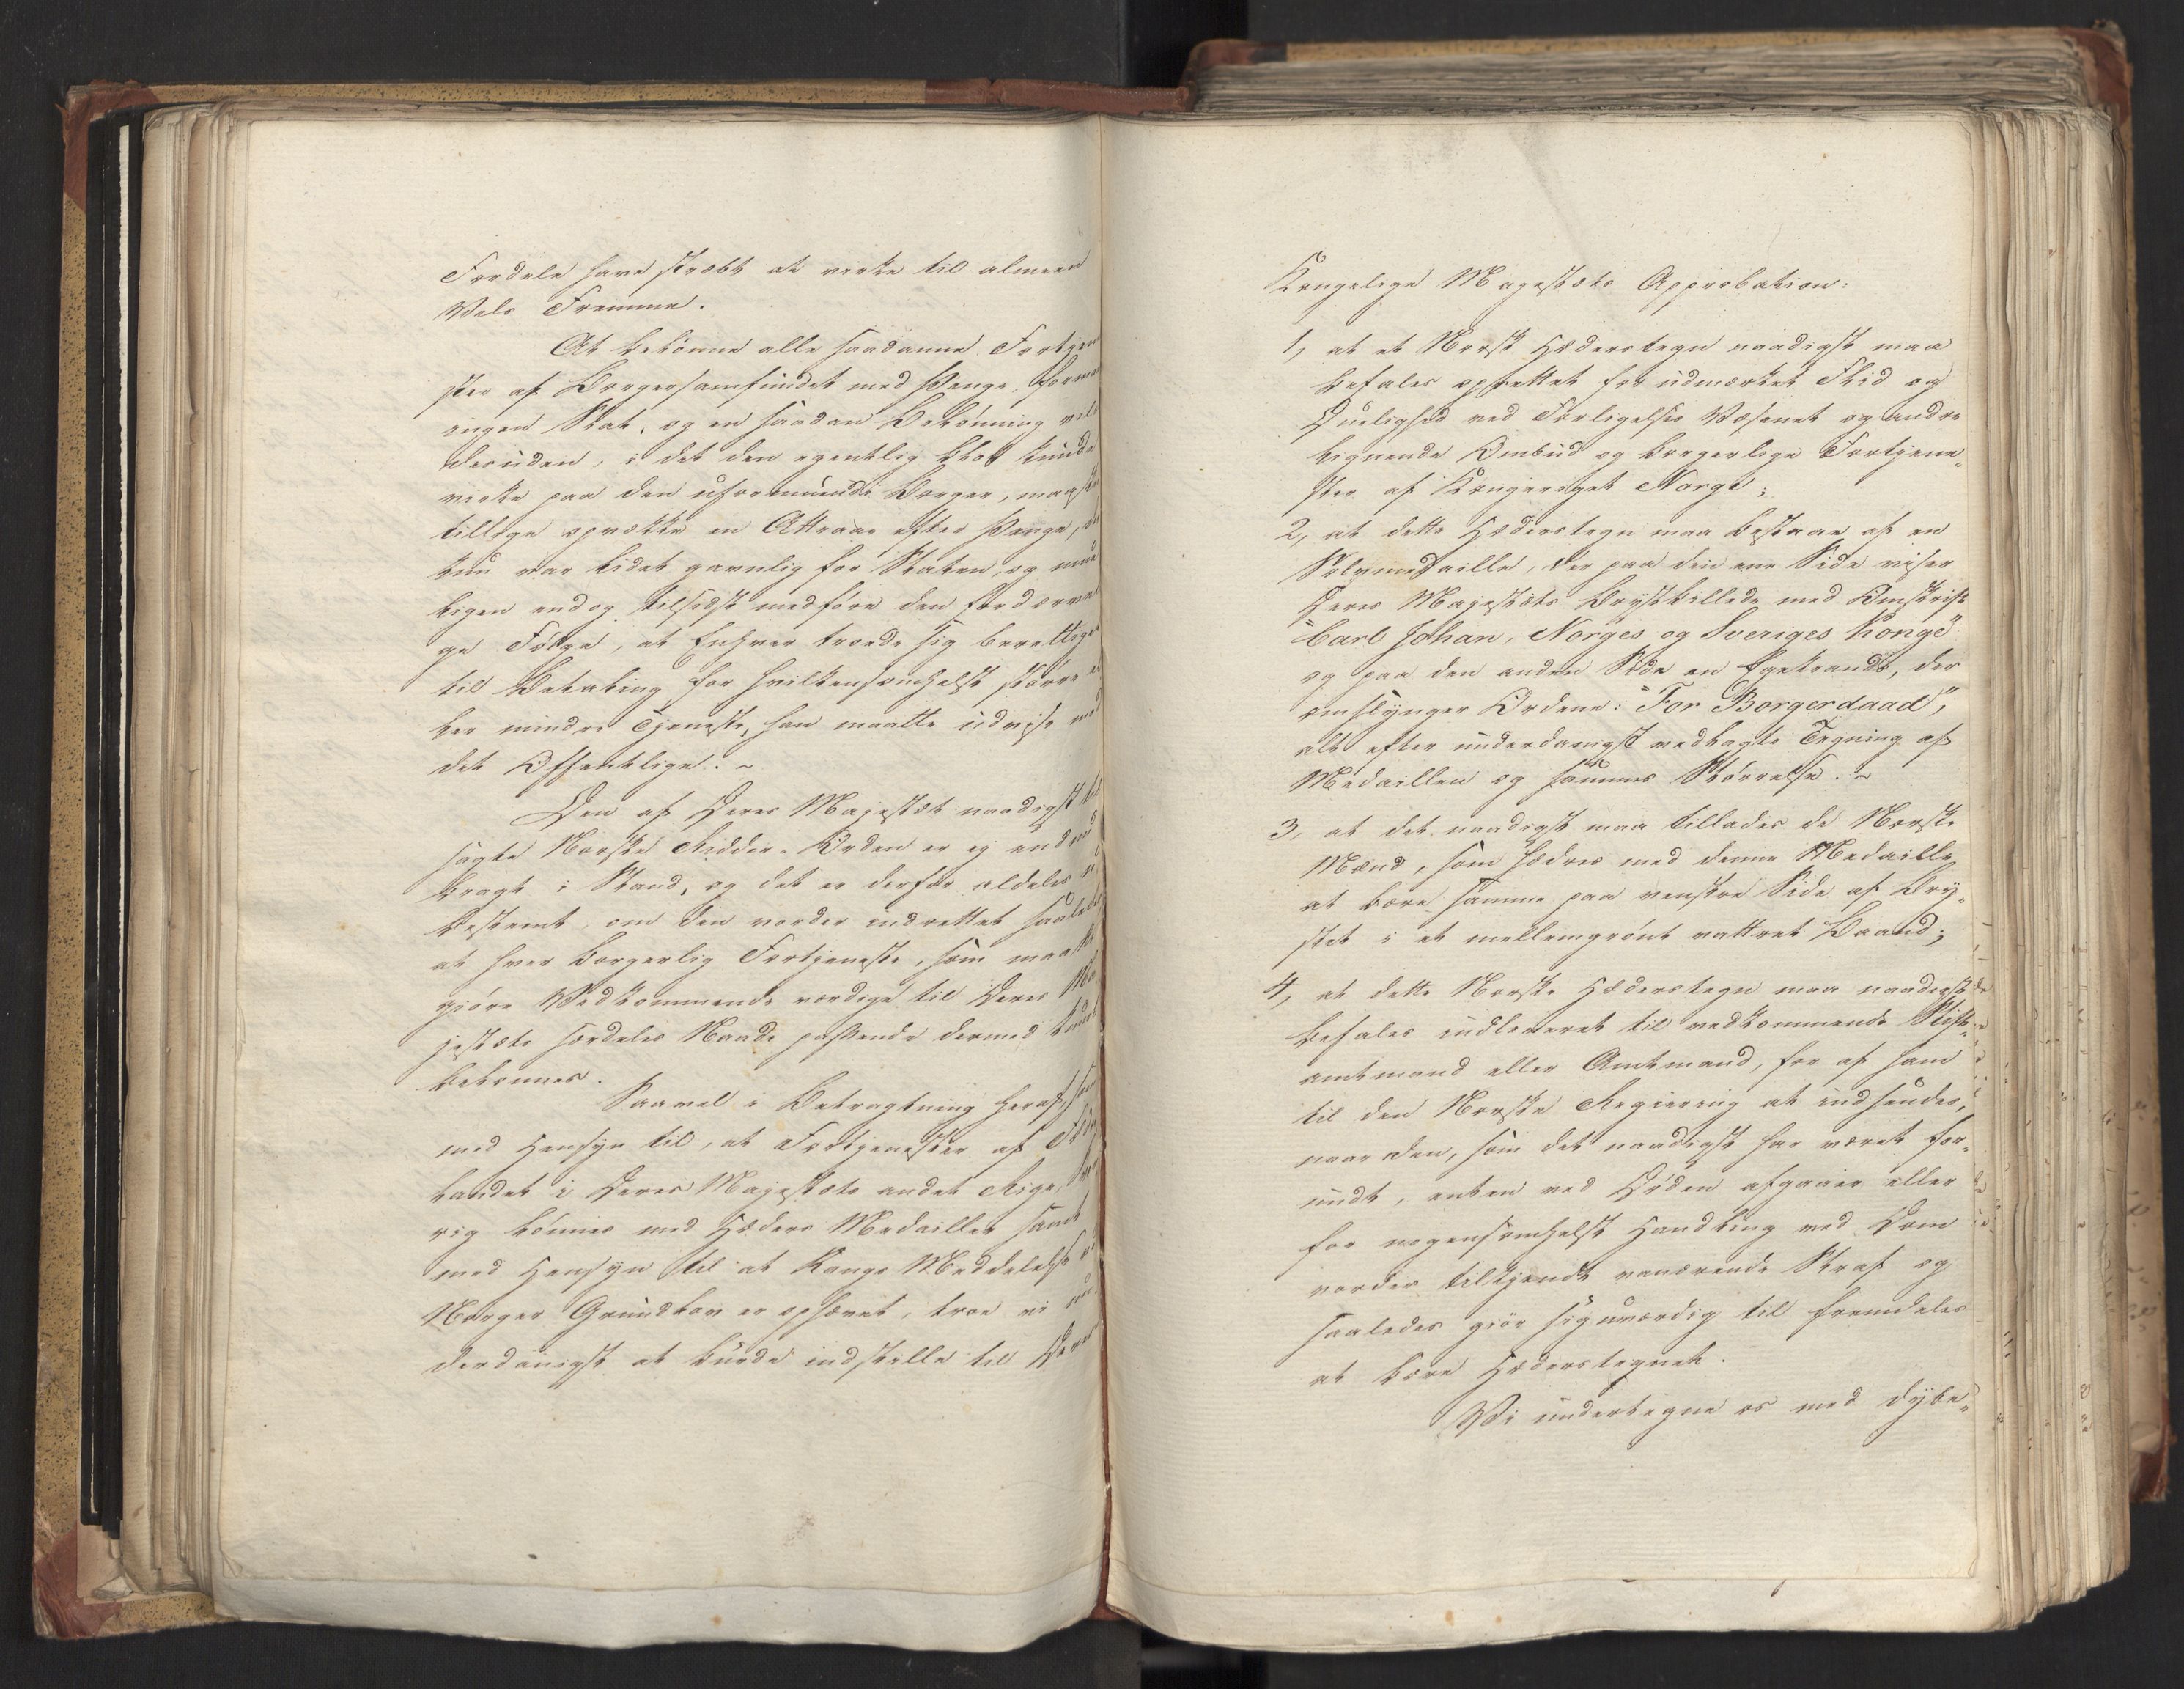 Fordele have stræbt at virke til almeen
Vels Fremme.
At belönne alle saadanne Fortjene
ster af Borgersamfundet med Penge, formaa
ingen Stat, og en saadan Belönning vil
desuden, i det den egentlig blot kunde
virke paa den uformuende Borger, maaskee
tillige opvække en Attraae efter Penge,
kun var lidet gavnlig for Staten, og
ligen endog tilsidst medföre den fordærve
ge Fölge, at Enhver troede sig berettiget
til Betaling for hvilkensomhelst större el
ler mindre Tjeneste, han maatte udvise mod
det Offentlige. -
Den af Deres Majestæt naadigst til
sagte Norske Ridder-Orden er ej endnu
bragt i Stand, og det er derfor aldeles u
bestemt, om den vorder indrettet saaledes
at hver borgerlig Fortjeneste, som maatte
gjöre Vedkommende værdige til Deres Ma
jestæts særdeles Naade passende dermed kunde
belönnes.
Saavel i Betragtning heraf, som
med Hensyn til, at Fortjenester af Fædre
landet i Deres Majestæts andet Rige,
rig lönnes med Hæders Medailler samt
med Hensyn til at Rangs Meddelelse ved
Norges Grundlov er ophævet, troe vi un
derdanigst at burde indstille til Deres
Kongelige Majestæts Approbation:
1, at et Norsk Hæderstegn naadigst maa
befales oprettet for udmærket Flid og
Duelighed ved Forligelses Væsenet og andre
lignende Ombud og borgerlige Fortjene„
ster af Kongeriget Norge;
2, at dette Hæderstegn maa bestaae af en
Sölvmedaille, der paa den ene Side viser
Deres Majestæts Brystbillede med Omskrift
"Carl Johan, Norges og Sveriges Konge"
og paa den anden Side en Egekrands, der
omslynger Ordene: "For Borgerdaad",
alt efter underdanigst vedlagte Tegning af
Medaillen og sammes Störrelse. -
3, at det naadigst maa tillades de Norske
Mænd, som hædres med denne Medaille
at bære samme paa venstre Side af Bry„
stet i et mellemgrönt vattret Baand;
4, at dette Norske Hæderstegn maa naadigst
befales indleveret til vedkommende Stift„
amtmand eller Amtmand, for af ham
til den Norske Regiering at indsendes,
naar den, som det naadigst har været for„
undt, enten ved Döden afgaaer eller
for nogensomhelst Handling ved Dom
vorder tilkjendt vanærende Straf og
saaledes giör sig uværdig til fremdeles
at bære Hæderstegnet.
Vi undertegne os med dybe„